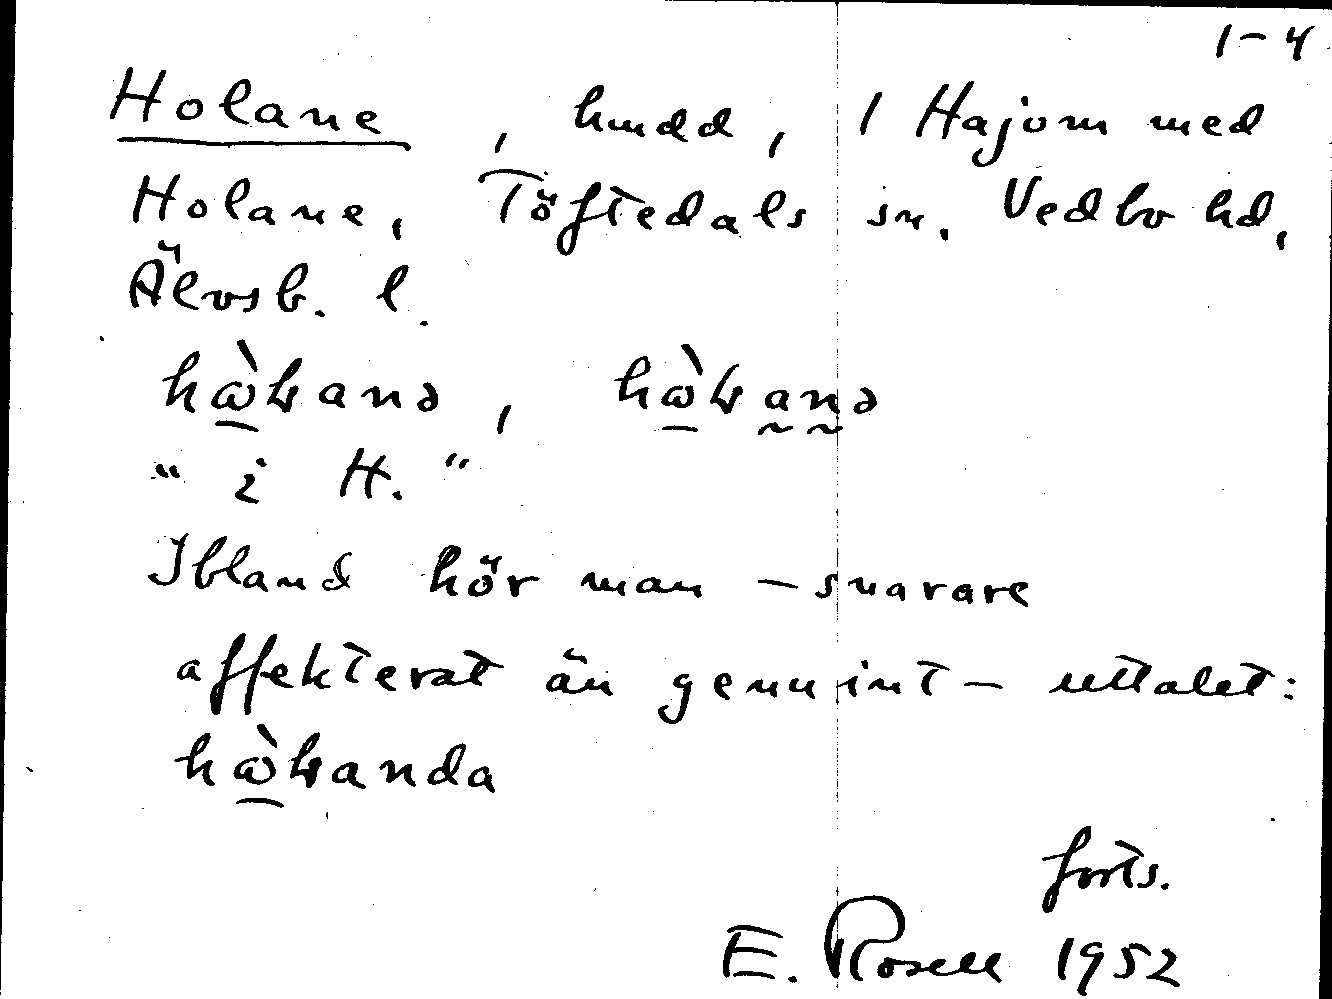 1-4
Holane, hmdd, 1 Hajom med
Holane, Töftedals sn. Vedbo hd,
Älvsb. l.
" i H. "
Ibland hör man – snarare
affekterat än genuint – uttalet:
forts.
E. Rosell 1952